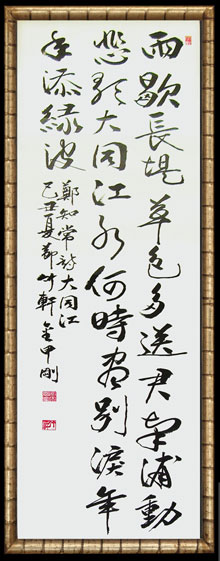 雨歇長堤草色多送君南浦動
悲歌大同江水何時盡別淚年
年添綠波
鄭知常詩大同江
己丑夏節竹軒金甲剛